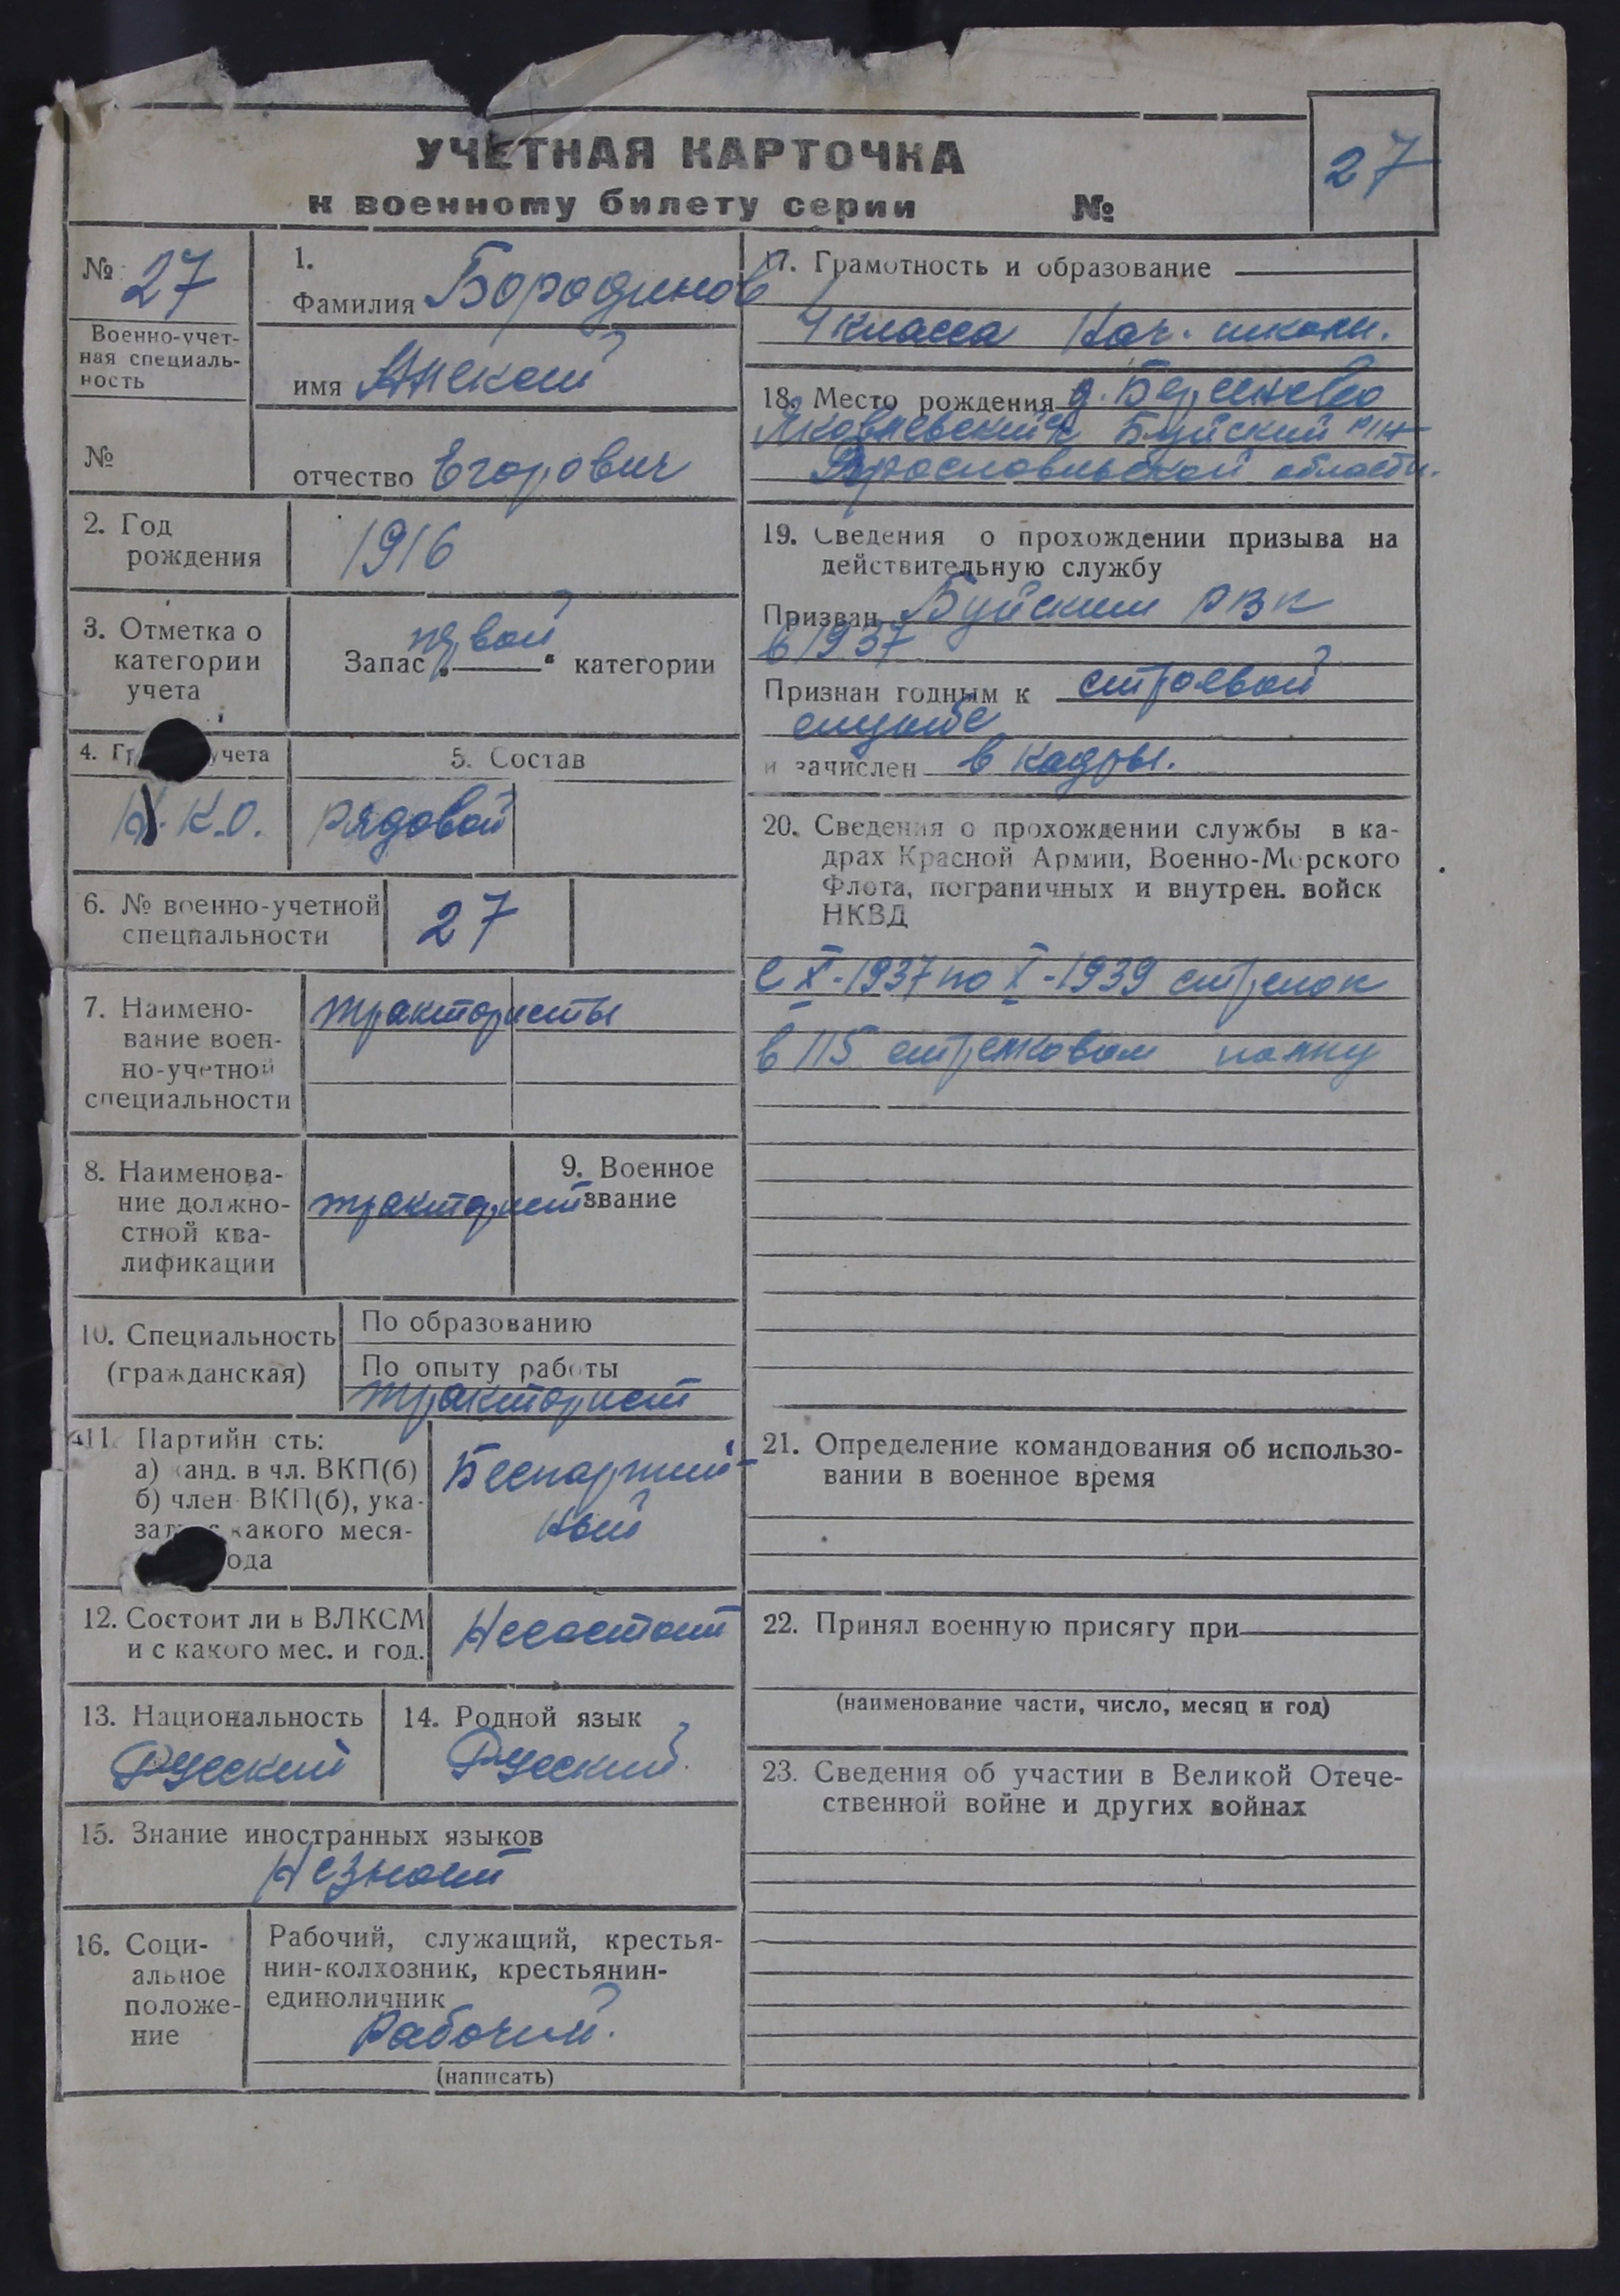 УЧЕТНАЯ КАРТОЧКА
к военному билету серии №
27
№ 27
Военно-учет-
ная специаль-
ность
№
1.
Фамилия Бородинов
имя Алексей
отчество Егорович
2. Год
рождения
1916
3. Отметка о
категории
учета
Запас „первой“ категории
4. Гр учета
К.О.
5. Состав
рядовой
6. № военно-учетной
специальности
27
7. Наимено-
вание воен-
но-учетной
специальности
трактористы
8. Наименова-
ние должно-
стной ква-
лификации
тракторист
9. Военное
звание
10. Специальность
(гражданская)
По образованию
По опыту работы
тракторист
11. Партийн сть:
а) канд. в чл. ВКП(б)
б) член ВКП(б), ука-
зать с какого меся-
ода
Беспартий-
ный
12. Состоит ли в ВЛКСМ
и с какого мес. и год.
Несостоит
13. Национальность
Русский
14. Родной язык
Русский
15. Знание иностранных языков
Незнает
16. Соци-
альное
положе-
ние
Рабочий, служащий, крестья-
нин-колхозник, крестьянин-
единоличник
Рабочий.
(написать)
17. Грамотность и образование
4 класса Нач. школы.
18. Место рождения д.
Яковлевский Буйский
Ярославльской области.
19. Сведения о прохождении призыва на
действительную службу
Призван Буйским РВК
в 1937
Признан годным к строевой
службе
и зачислен в кадры.
20. Сведения о прохождении службы в ка-
драх Красной Армии, Военно-Морского
Флота, пограничных и внутрен. войск
НКВД
С X-1937 по X-1939 стрелок
в 115 стрелковом полку
21. Определение командования об использо-
вании в военное время
22. Принял военную присягу при
(наименование части, число, месяц и год)
23. Сведения об участии в Великой Отече-
ственной войне и других войнах